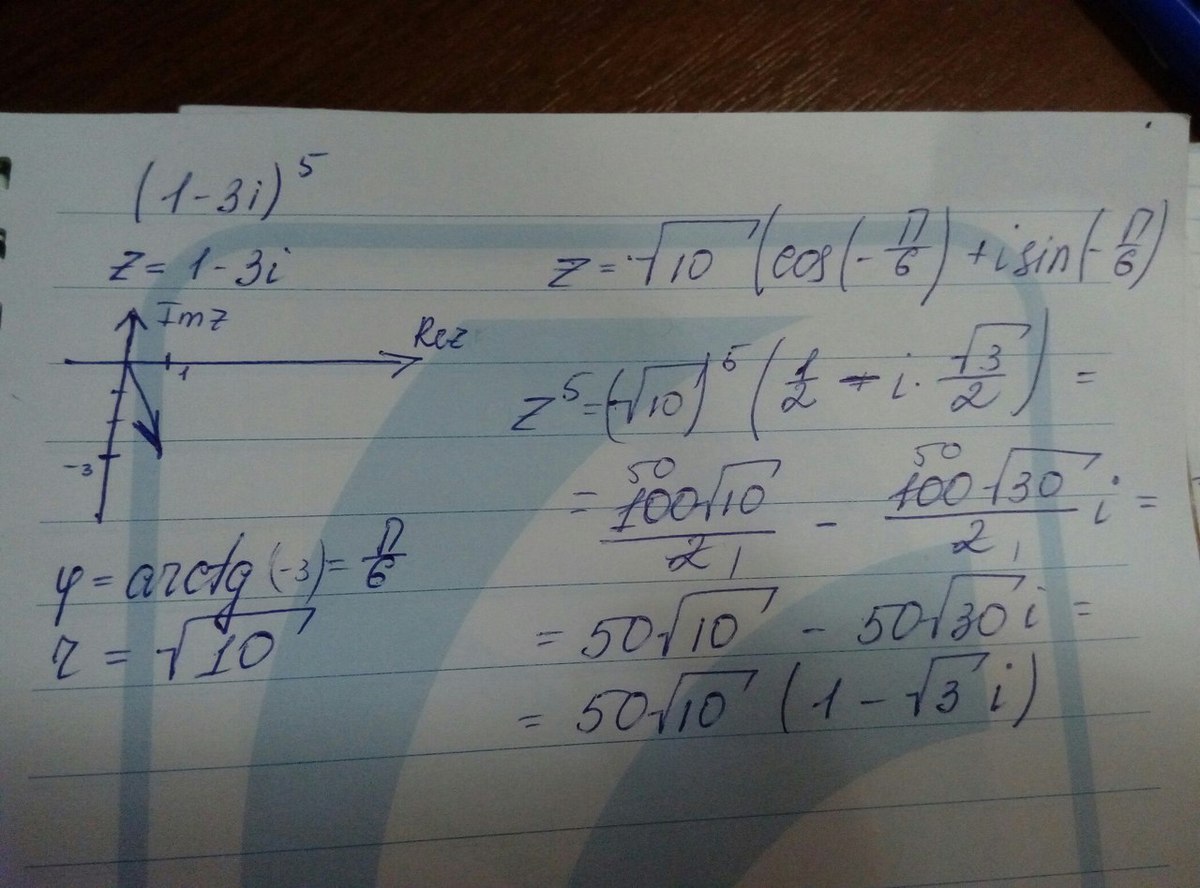 (1-3i)^5
z = 1-3i
Im z
Re z
1
-3
φ = arctg (-3) = π/6
r = √10
z = √10 (cos(-π/6) + i sin(-π/6)
z^5 = (√10)^5 (1/2 - i · √3/2) =
= 50 100√10/2 1 - 50 100√30/2 1 i =
= 50√10 - 50√30 i =
= 50√10 (1 - √3 i)